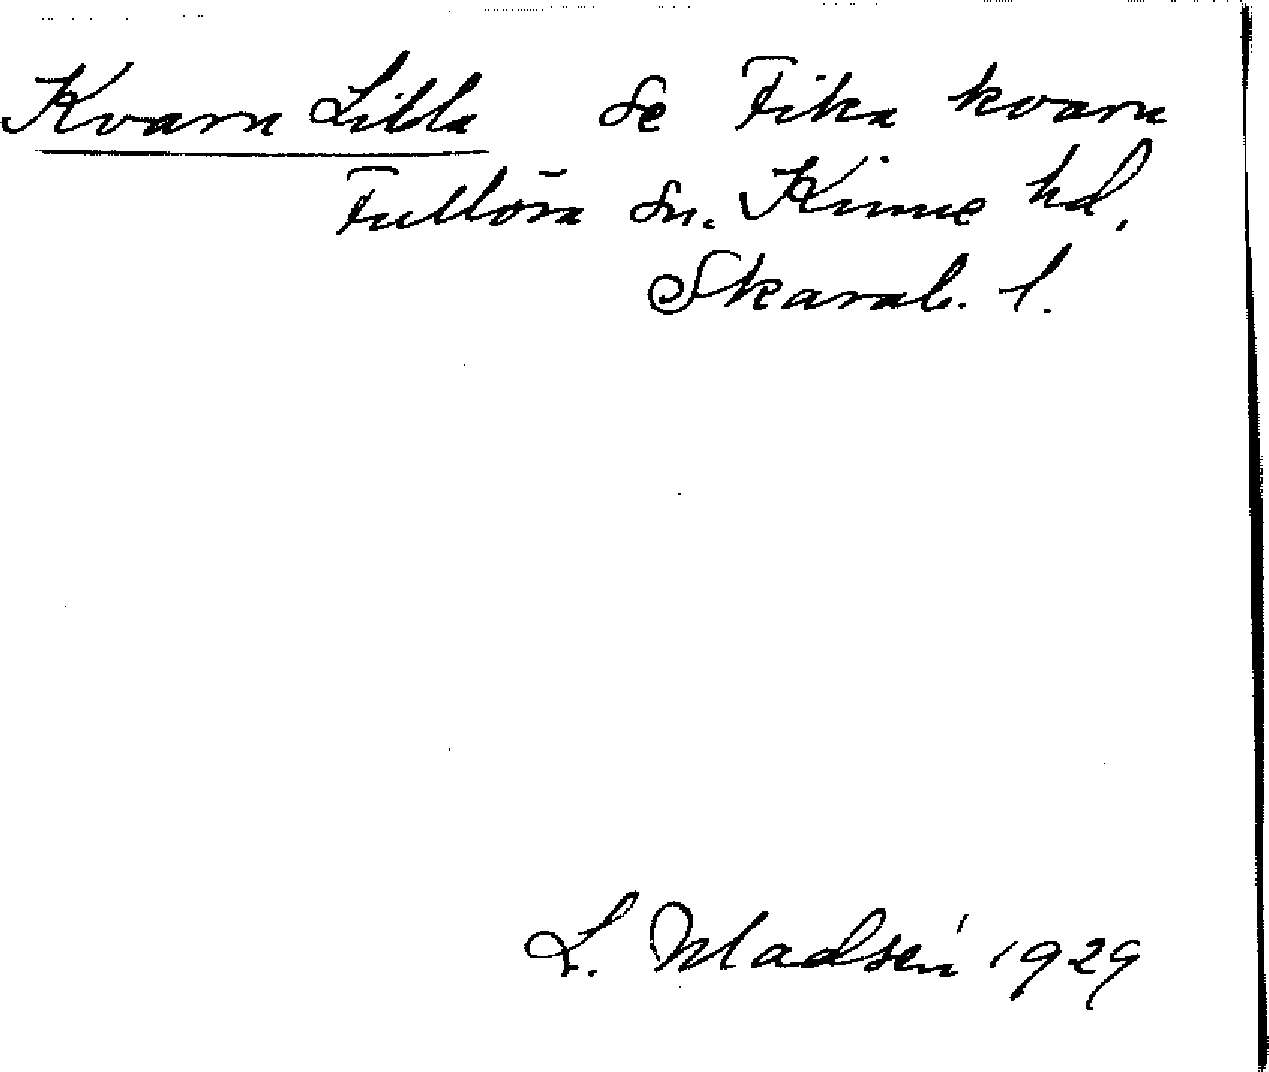 Kvarn Lilla se Fika kvarn
Fullösa sn. Kinne hd,
Skarab. l.
L. Madsén 1929